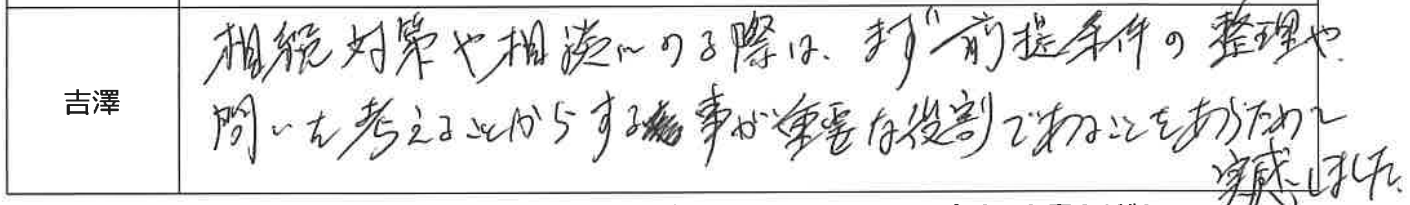 吉澤
相続対策や相談にのる際は、まず前提条件の整理や
問いを考えることからする事が重要な役割であることをあらためて
実感しました。